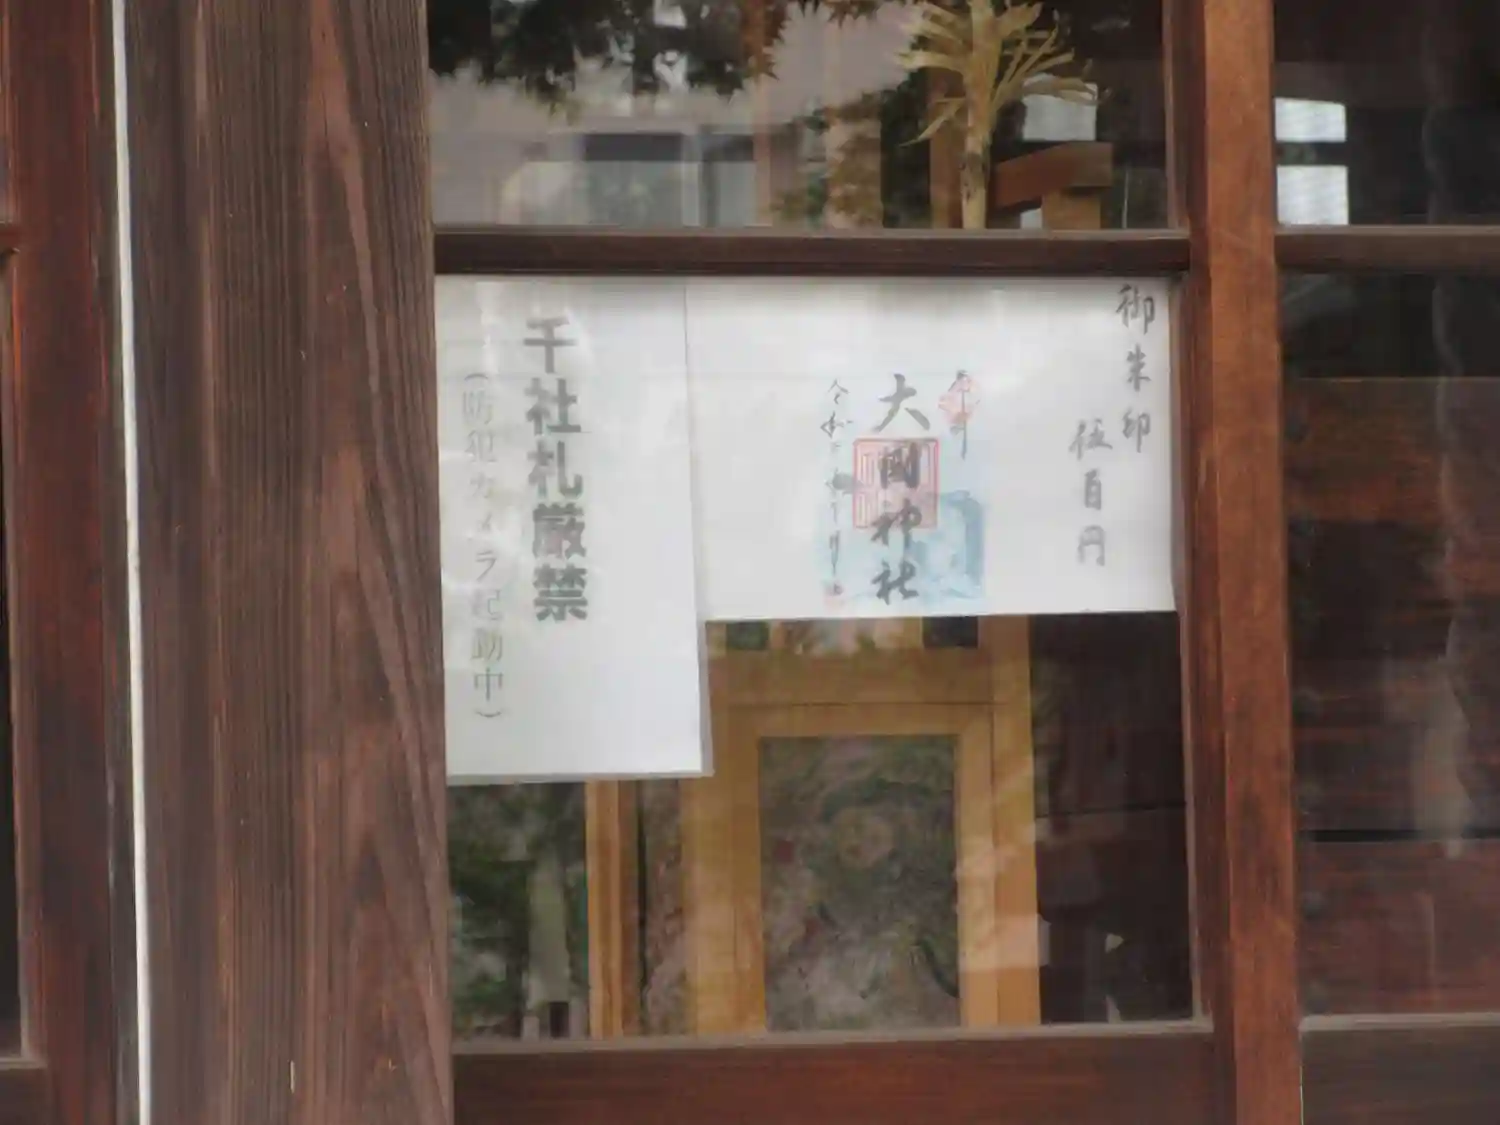 御朱印
伍百円
奉拝
大國神社
千社札厳禁
（防犯カメラ起動中）